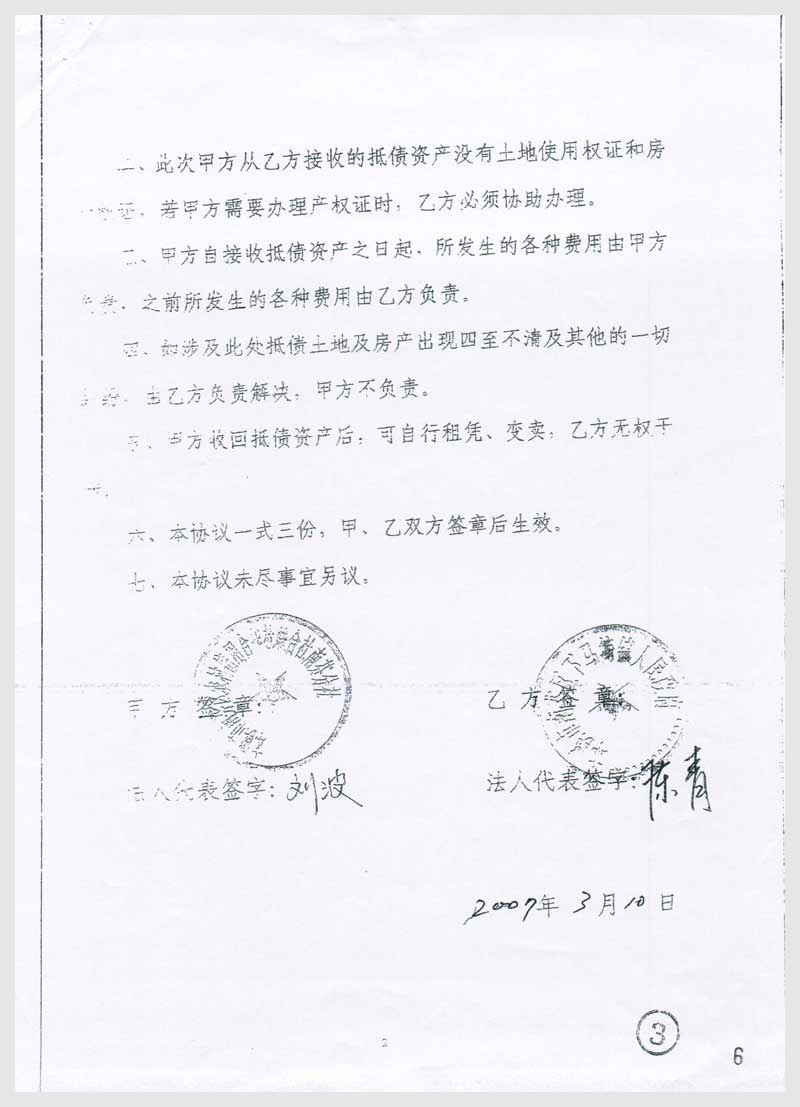 二、此次甲方从乙方接收的抵债资产没有土地使用权证和房
权证，若甲方需要办理产权证时，乙方必须协助办理。
三、甲方自接收抵债资产之日起，所发生的各种费用由甲方
负责，之前所发生的各种费用由乙方负责。
四、如涉及此处抵债土地及房产出现四至不清及其他的一切
纠纷，由乙方负责解决，甲方不负责。
五、甲方收回抵债资产后，可自行租凭、变卖，乙方无权干
涉。
六、本协议一式三份，甲、乙双方签章后生效。
七、本协议未尽事宜另议。
甲方签章： 乙方签章：
人民政府
法人代表签字：刘波 法人代表签字：陈青
2007年3月10日
2
3
6